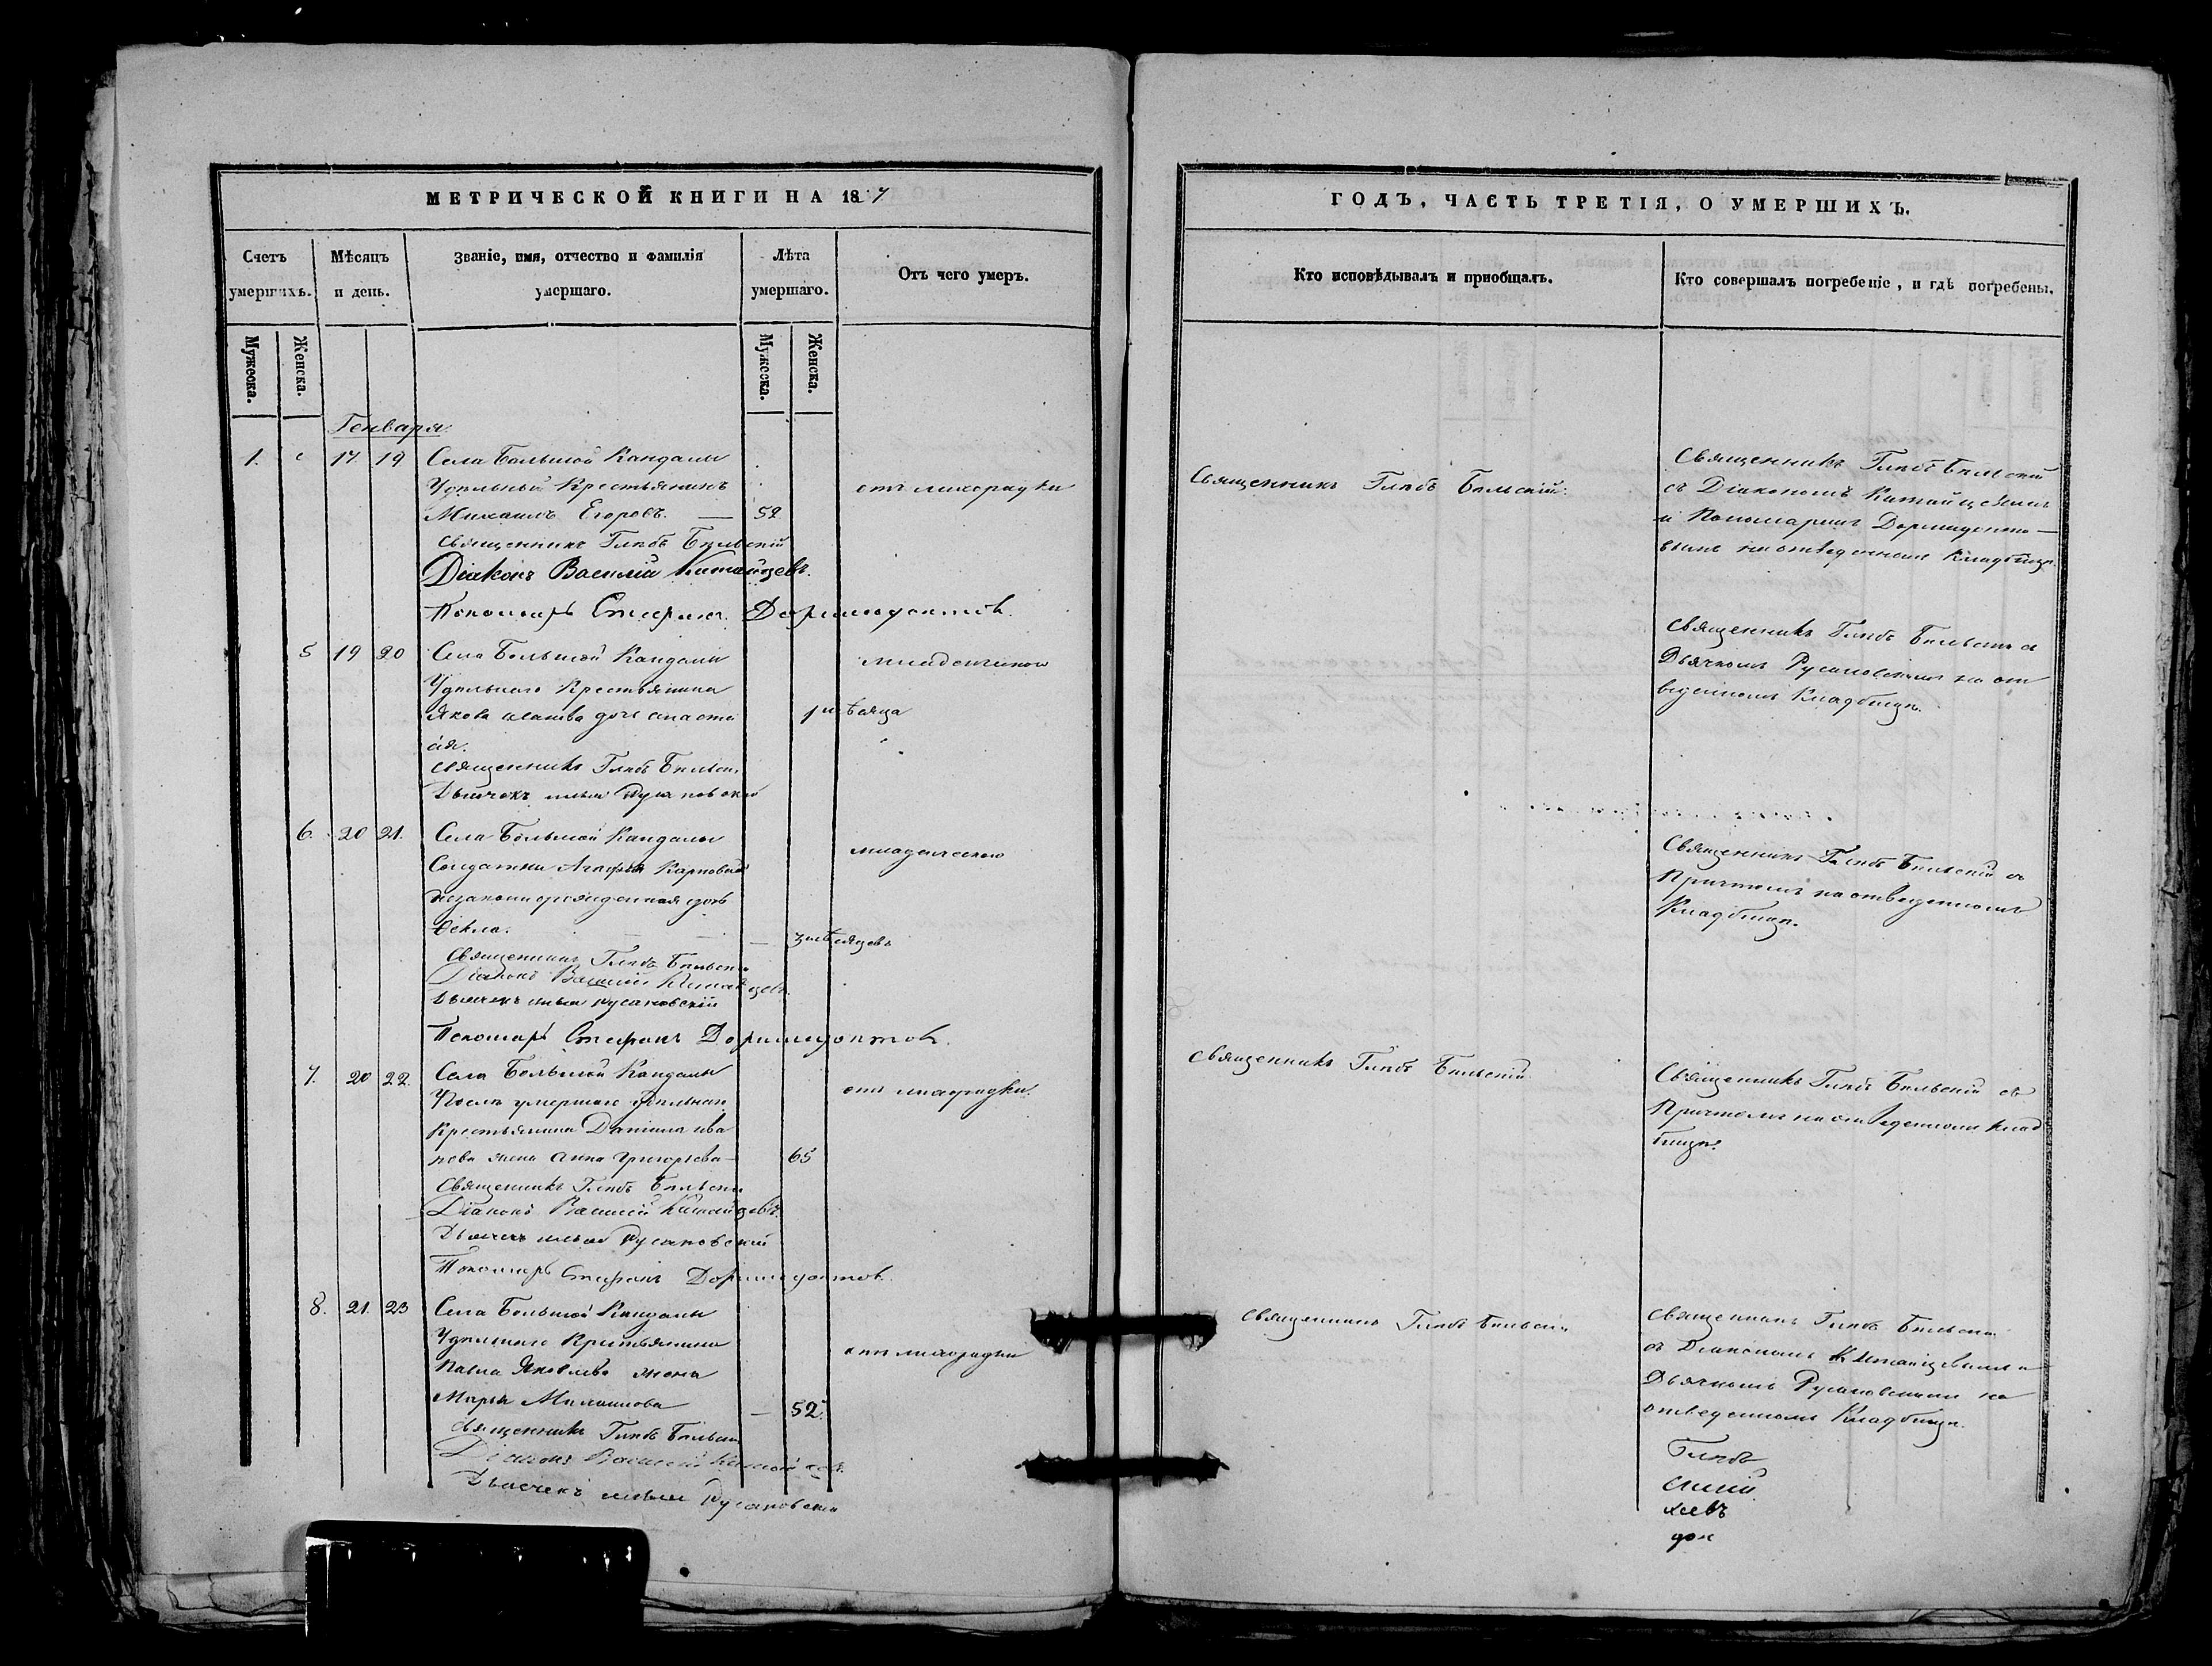 МЕТРИЧЕСКОЙ КНИГИ НА 18 7
Счетъ умершихъ.
Мѣсяцъ и день.
Званіе, имя, отчество и фамилія умершаго.
Лѣта умершаго.
Отъ чего умеръ.
Мужеска.
Женска.
Мужеска.
Женска.
Генваря
1. 17 19 Села Большой Кандалы
Удѣльный Крестьянинъ
отъ лихорадки
Михаилъ Егоровъ. — 52
Священникъ Глѣбъ Бѣльскій
Діаконъ Василій Китайцевъ.
Пономарь Стефанъ Доримедонтовъ.
5 19 20 Села Большой Кандалы
младенческою
Удѣльнаго Крестьянина
Якова дочь Анаста
мѣсяца
сія.
Священникъ Глѣбъ Бѣльскі
Дьячекъ Илья Русановскій
6. 20 21. Села Большой Кандалы
младенческою
Солдатки Агафьи Карповой
незаконнорожденная дочь
Ѳекла.
3 мѣсяцевъ
Священникъ Глѣбъ Бѣльскі
Діаконъ Василій Китайцевъ.
Дьячекъ Илья Русановскій
Пономарь Стефанъ Доримедонтовъ.
7. 20 22. Села Большой Кандалы
Послѣ умершаго удѣльнаго
отъ лихорадки.
Крестьянина Даніила Ива
нова жена Анна Григорьева — 65
Священникъ Глѣбъ Бѣльскі
Діаконъ Василій Китайцевъ.
Дьячекъ Илья Русановскій
Пономарь Стефанъ Доримедонтовъ.
8. 21. 23 Села Большой Кандалы
Удѣльнаго Крестьянина
отъ лихорадки
Павла Яковлева жена
Марья Михайлова — 52.
Священникъ Глѣбъ Бѣльскі
Діаконъ Василій Китайцевъ.
Дьячекъ Илья Русановскій
ГОДЪ, ЧАСТЬ ТРЕТІЯ, О УМЕРШИХЪ.
Кто исповѣдывалъ и пріобщалъ.
Кто совершалъ погребеніе, и гдѣ погребены.
Священникъ Глѣбъ Бѣльскій.
Священникъ Глѣбъ Бѣльскій
съ Діакономъ Китайцевымъ
и Пономаремъ Доримедонто—
вымъ на отведенномъ Кладбищѣ.
Священникъ Глѣбъ Бѣльскій съ
Дьячкомъ Русановскимъ на от
веденномъ Кладбищѣ.
Священникъ Глѣбъ Бѣльскій съ
Причтомъ на отведенномъ
Кладбищѣ.
Священникъ Глѣбъ Бѣльскій
Священникъ Глѣбъ Бѣльскій съ
Причтомъ на отведенномъ Клад
бищѣ.
Священникъ Глѣбъ Бѣльскі
Священникъ Глѣбъ Бѣльскі
съ Діакономъ Китайцевымъ и
Дьячкомъ Русановскимъ на
отведенномъ Кладбищѣ.
Глѣбъ